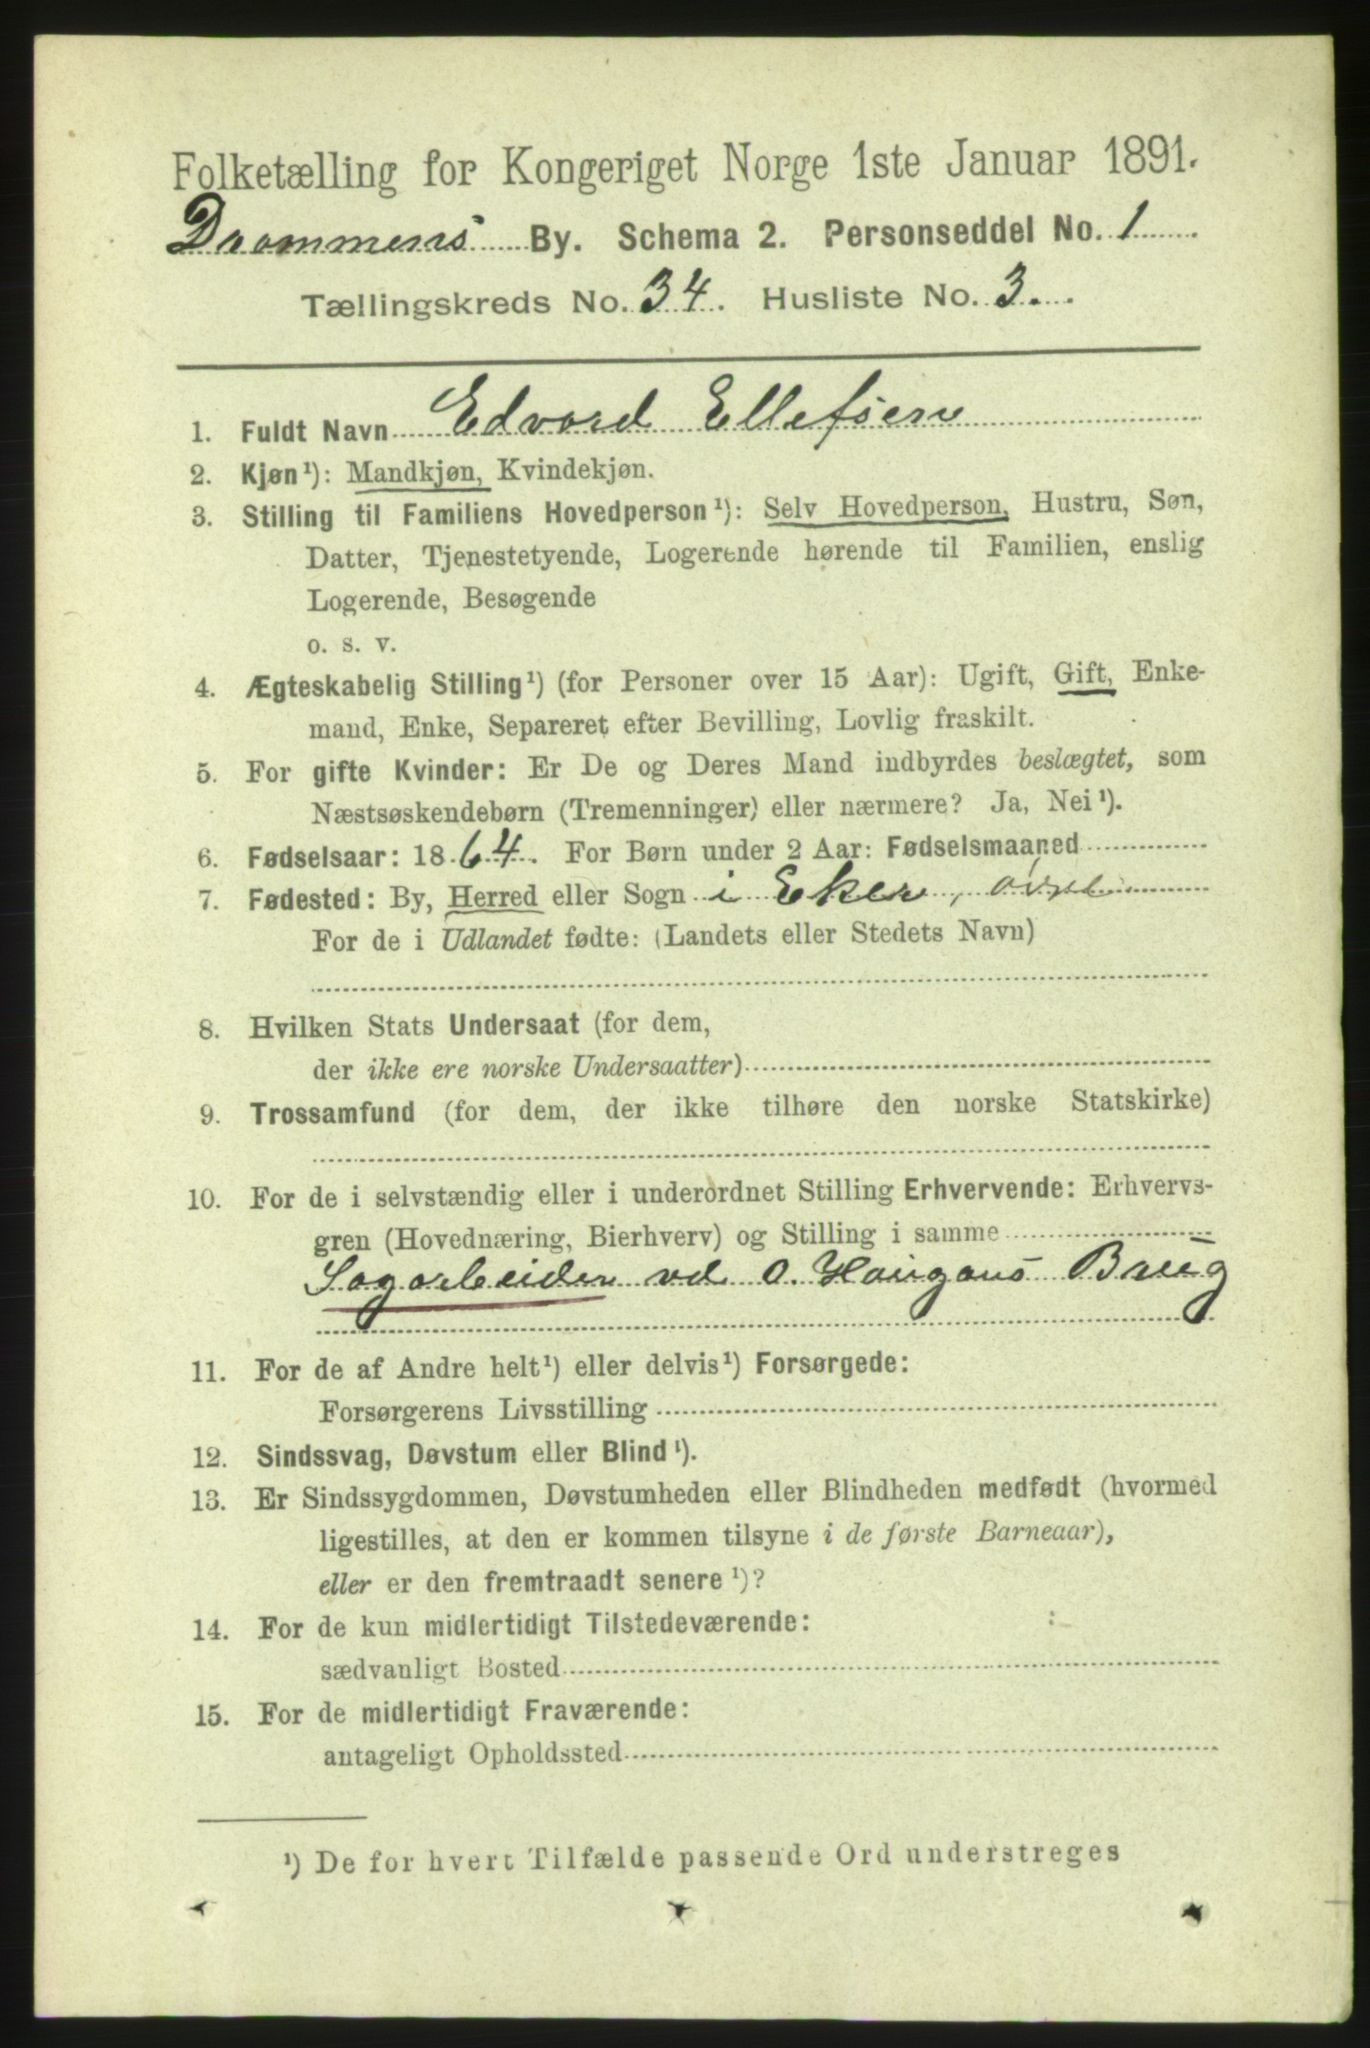 Folketælling for Kongeriget Norge 1ste Januar 1891.
Drammens By. Schema 2. Personseddel No. 1
Tællingskreds No. 34. Husliste No. 3.
1. Fuldt Navn Edvard Ellefsen
2. Kjøn¹): Mandkjøn, Kvindekjøn.
3. Stilling til Familiens Hovedperson¹): Selv Hovedperson, Hustru, Søn,
Datter, Tjenestetyende, Logerende hørende til Familien, enslig
Logerende, Besøgende
o. s. v.
4. Ægteskabelig Stilling¹) (for Personer over 15 Aar): Ugift, Gift, Enke-
mand, Enke, Separeret efter Bevilling, Lovlig fraskilt.
5. For gifte Kvinder: Er De og Deres Mand indbyrdes beslægtet, som
Næstsøskendebørn (Tremenninger) eller nærmere? Ja, Nei¹).
6. Fødselsaar: 1864. For Børn under 2 Aar: Fødselsmaaned
7. Fødested: By, Herred eller Sogn i Eker, øvre
For de i Udlandet fødte: (Landets eller Stedets Navn)
8. Hvilken Stats Undersaat (for dem,
der ikke ere norske Undersaatter)
9. Trossamfund (for dem, der ikke tilhøre den norske Statskirke)
10. For de i selvstændig eller i underordnet Stilling Erhvervende: Erhvervs-
gren (Hovednæring, Bierhverv) og Stilling i samme
Sagarbeider vd O. Haugans Brug
11. For de af Andre helt¹) eller delvis¹) Forsørgede:
Forsørgerens Livsstilling
12. Sindssvag, Døvstum eller Blind¹).
13. Er Sindssygdommen, Døvstumheden eller Blindheden medfødt (hvormed
ligestilles, at den er kommen tilsyne i de første Barneaar),
eller er den fremtraadt senere¹)?
14. For de kun midlertidigt Tilstedeværende:
sædvanligt Bosted
15. For de midlertidigt Fraværende:
antageligt Opholdssted
¹) De for hvert Tilfælde passende Ord understreges